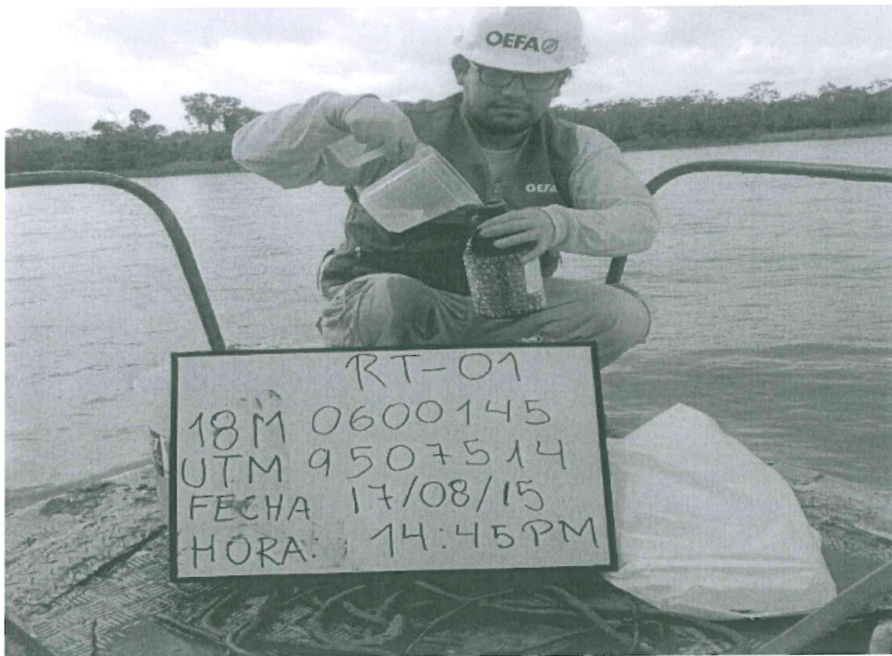 OEFA
OEFA
RT-01
18M 0600145
UTM 9507514
FECHA 17/08/15
HORA: 14:45PM